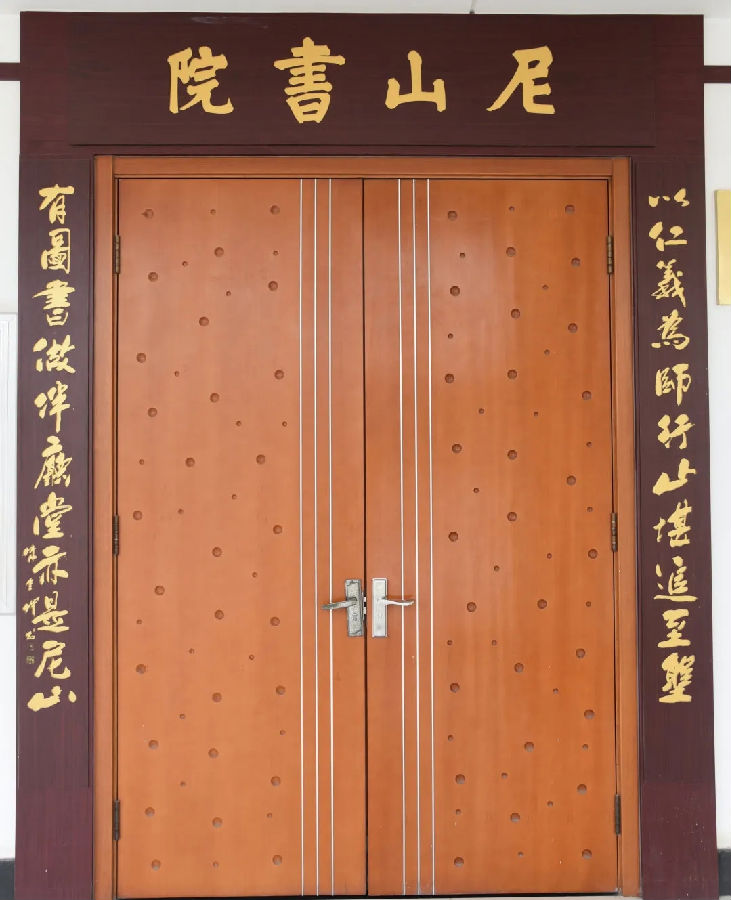 尼山書院
以仁義為師行止堪追至聖
有圖書做伴廳堂亦是尼山